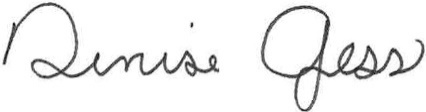 Denise Gess